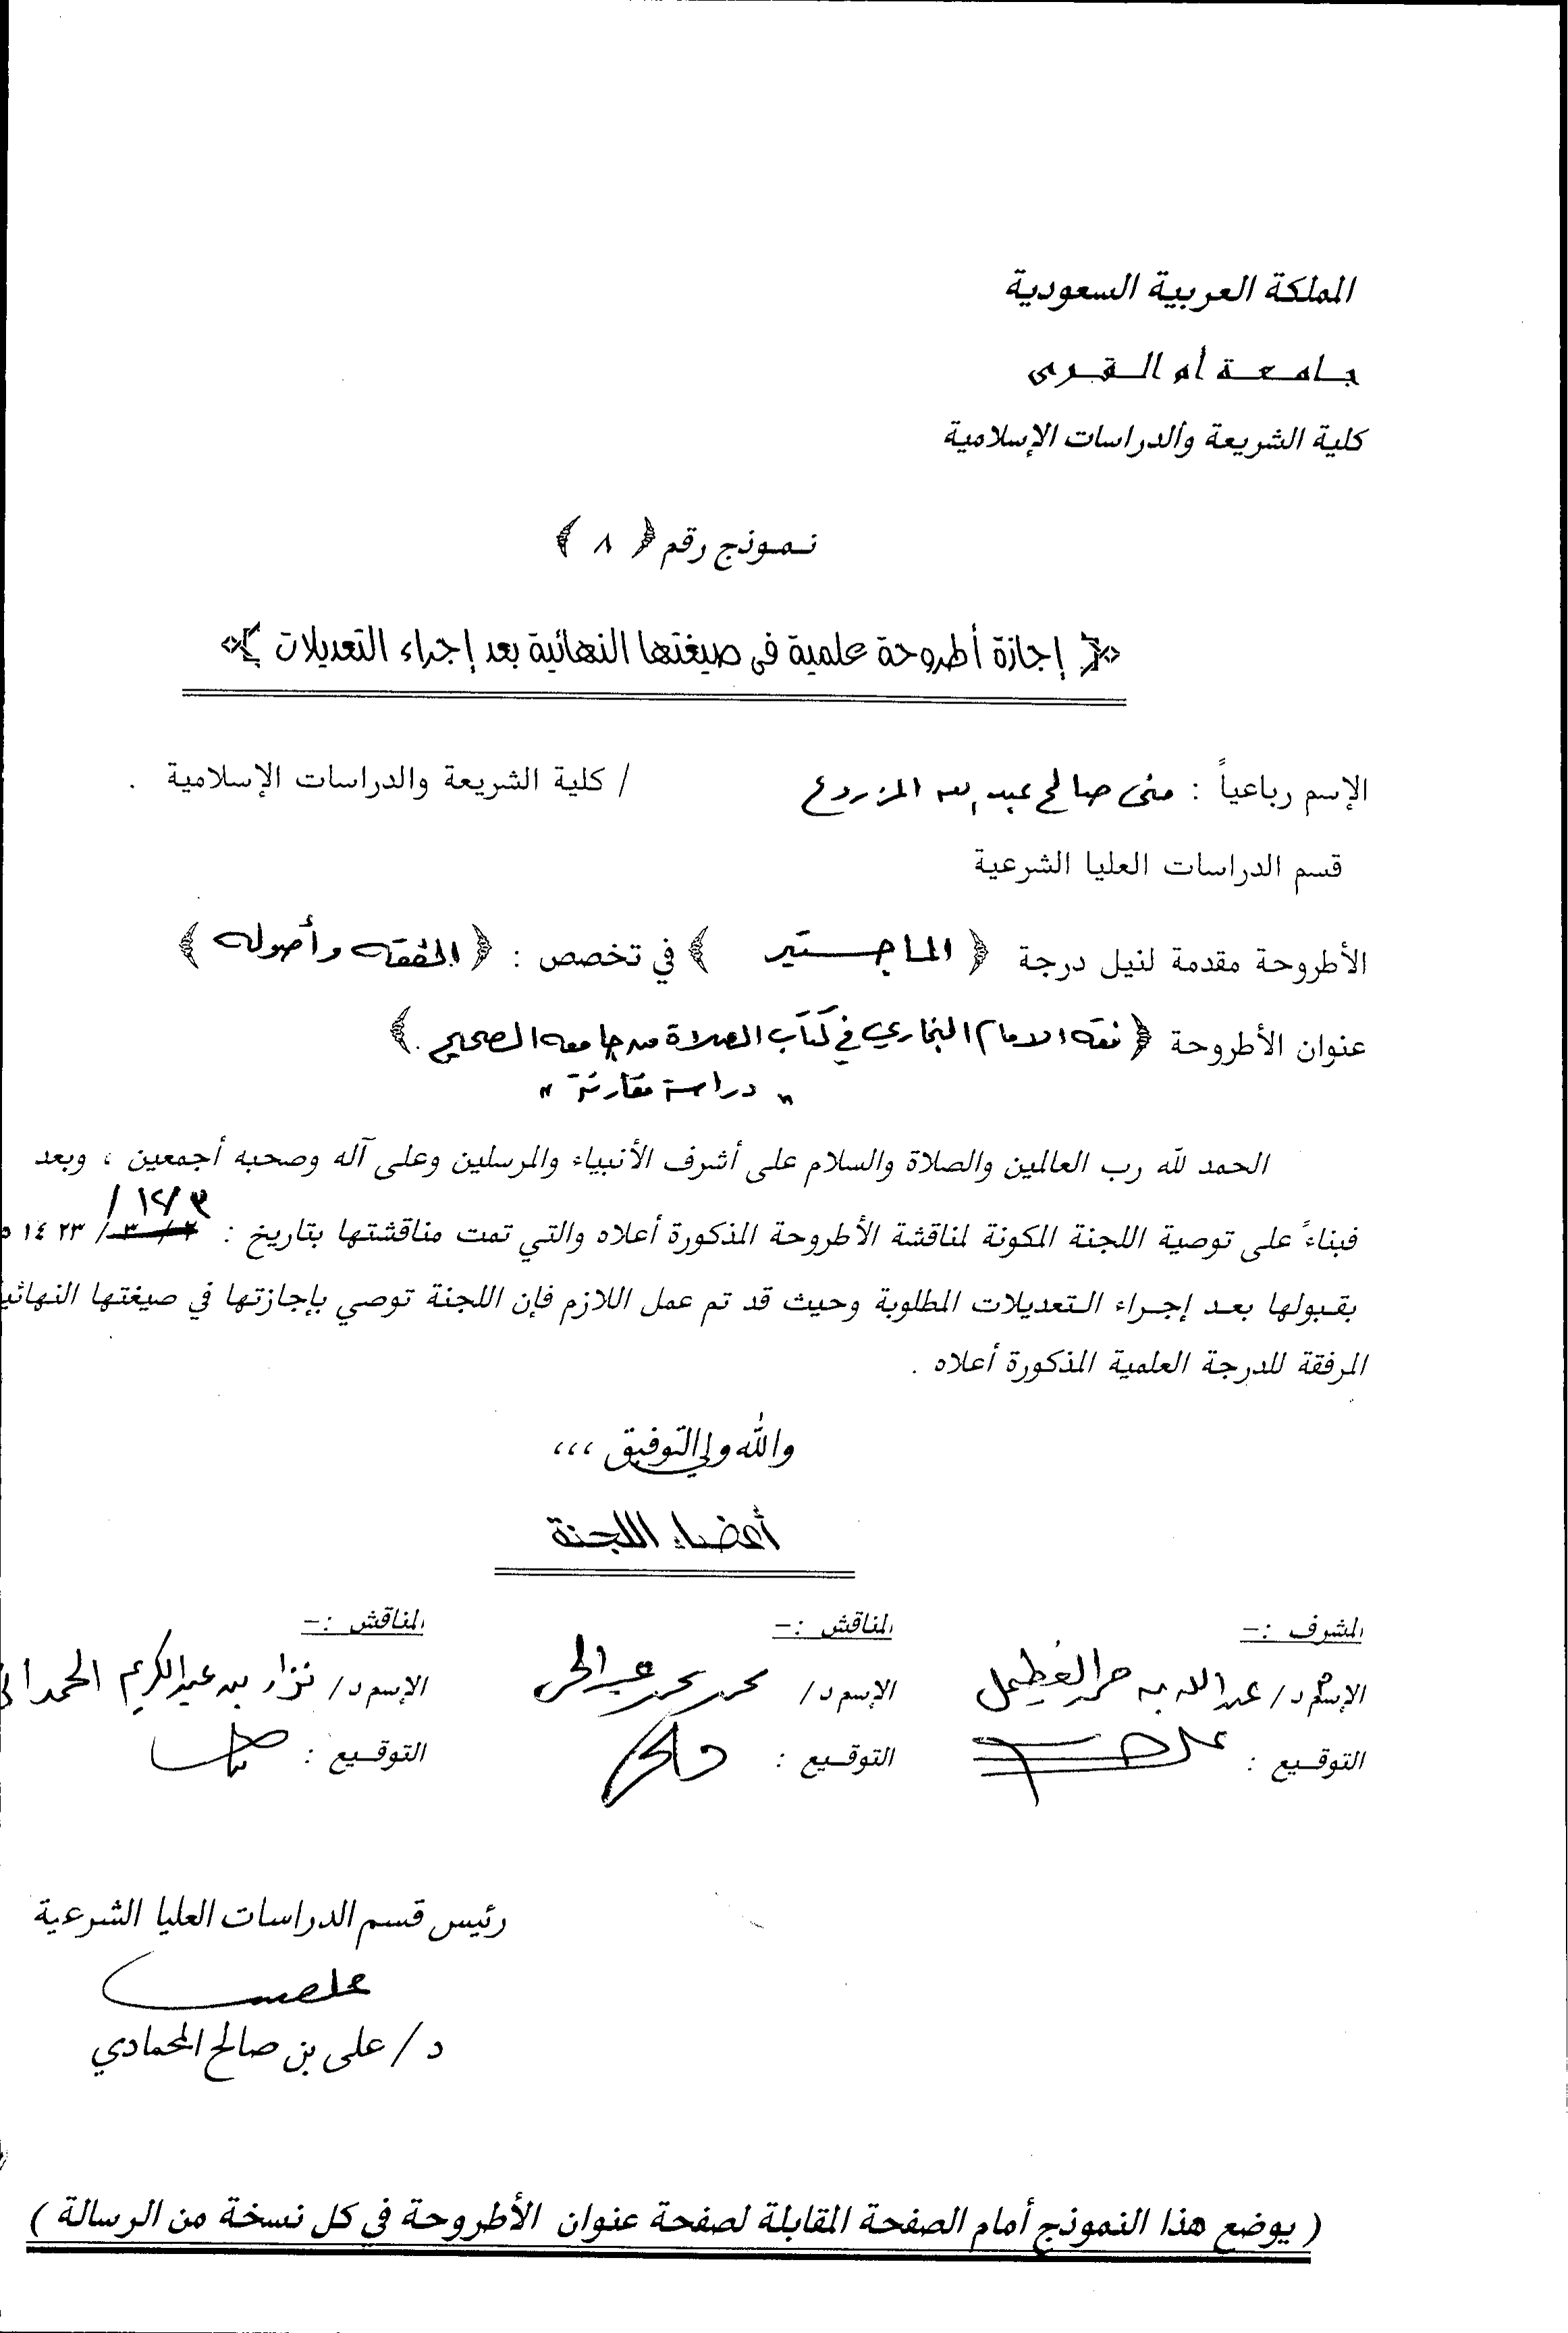 المملكة العربية السعودية
جامعة أم القرى
كلية الشريعة والدراسات الإسلامية
نموذج رقم ﴿ ٨ ﴾
﴿ إجازة أطروحة علمية في صيغتها النهائية بعد إجراء التعديلات ﴾
الإسم رباعياً : منى صالح عبد الله المزروع / كلية الشريعة والدراسات الإسلامية .
قسم الدراسات العليا الشرعية
الأطروحة مقدمة لنيل درجة ﴿ الماجستير ﴾ في تخصص : ﴿ الفقه وأصوله ﴾
عنوان الأطروحة ﴿ فقه الامام البخاري في كتاب الصلاة من جامعه الصحيح . ﴾
" دراسة مقارنة "
الحمد لله رب العالمين والصلاة والسلام على أشرف الأنبياء والمرسلين وعلى آله وصحبه أجمعين ، وبعد
فبناءً على توصية اللجنة المكونة لمناقشة الأطروحة المذكورة أعلاه والتي تمت مناقشتها بتاريخ : ٣/١٢/ ١٤٢٣ ه
بقبولها بعد إجراء التعديلات المطلوبة وحيث قد تم عمل اللازم فإن اللجنة توصي بإجازتها في صيغتها النهائي
المرفقة للدرجة العلمية المذكورة أعلاه .
والله ولي التوفيق ،،،
أعضاء اللجنة
المشرف :- المناقش :- المناقش :-
الإسم د/ عبد الله بن حمد الغطيمل الإسم د/ محمد محمد عبد الحي الإسم د/ نزار بن عبد الكريم الحمداني
التوقيع : التوقيع : التوقيع :
رئيس قسم الدراسات العليا الشرعية
د / على بن صالح المحمادي
( يوضع هذا النموذج أمام الصفحة المقابلة لصفحة عنوان الأطروحة في كل نسخة من الرسالة )